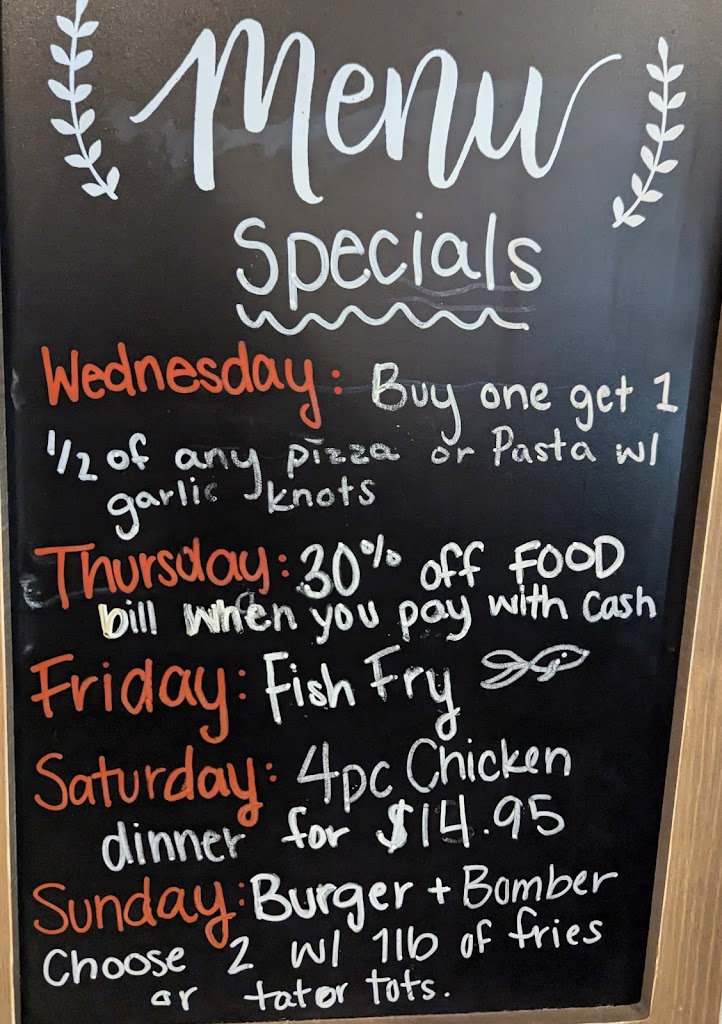 Menu
Specials
Wednesday: Buy one get 1
1/2 of any pizza or Pasta w/
garlic knots
Thursday: 30% off FOOD
bill when you pay with cash
Friday: Fish Fry
Saturday: 4pc Chicken
dinner for $14.95
Sunday: Burger + Bomber
Choose 2 w/ 1lb of fries
or tator tots.